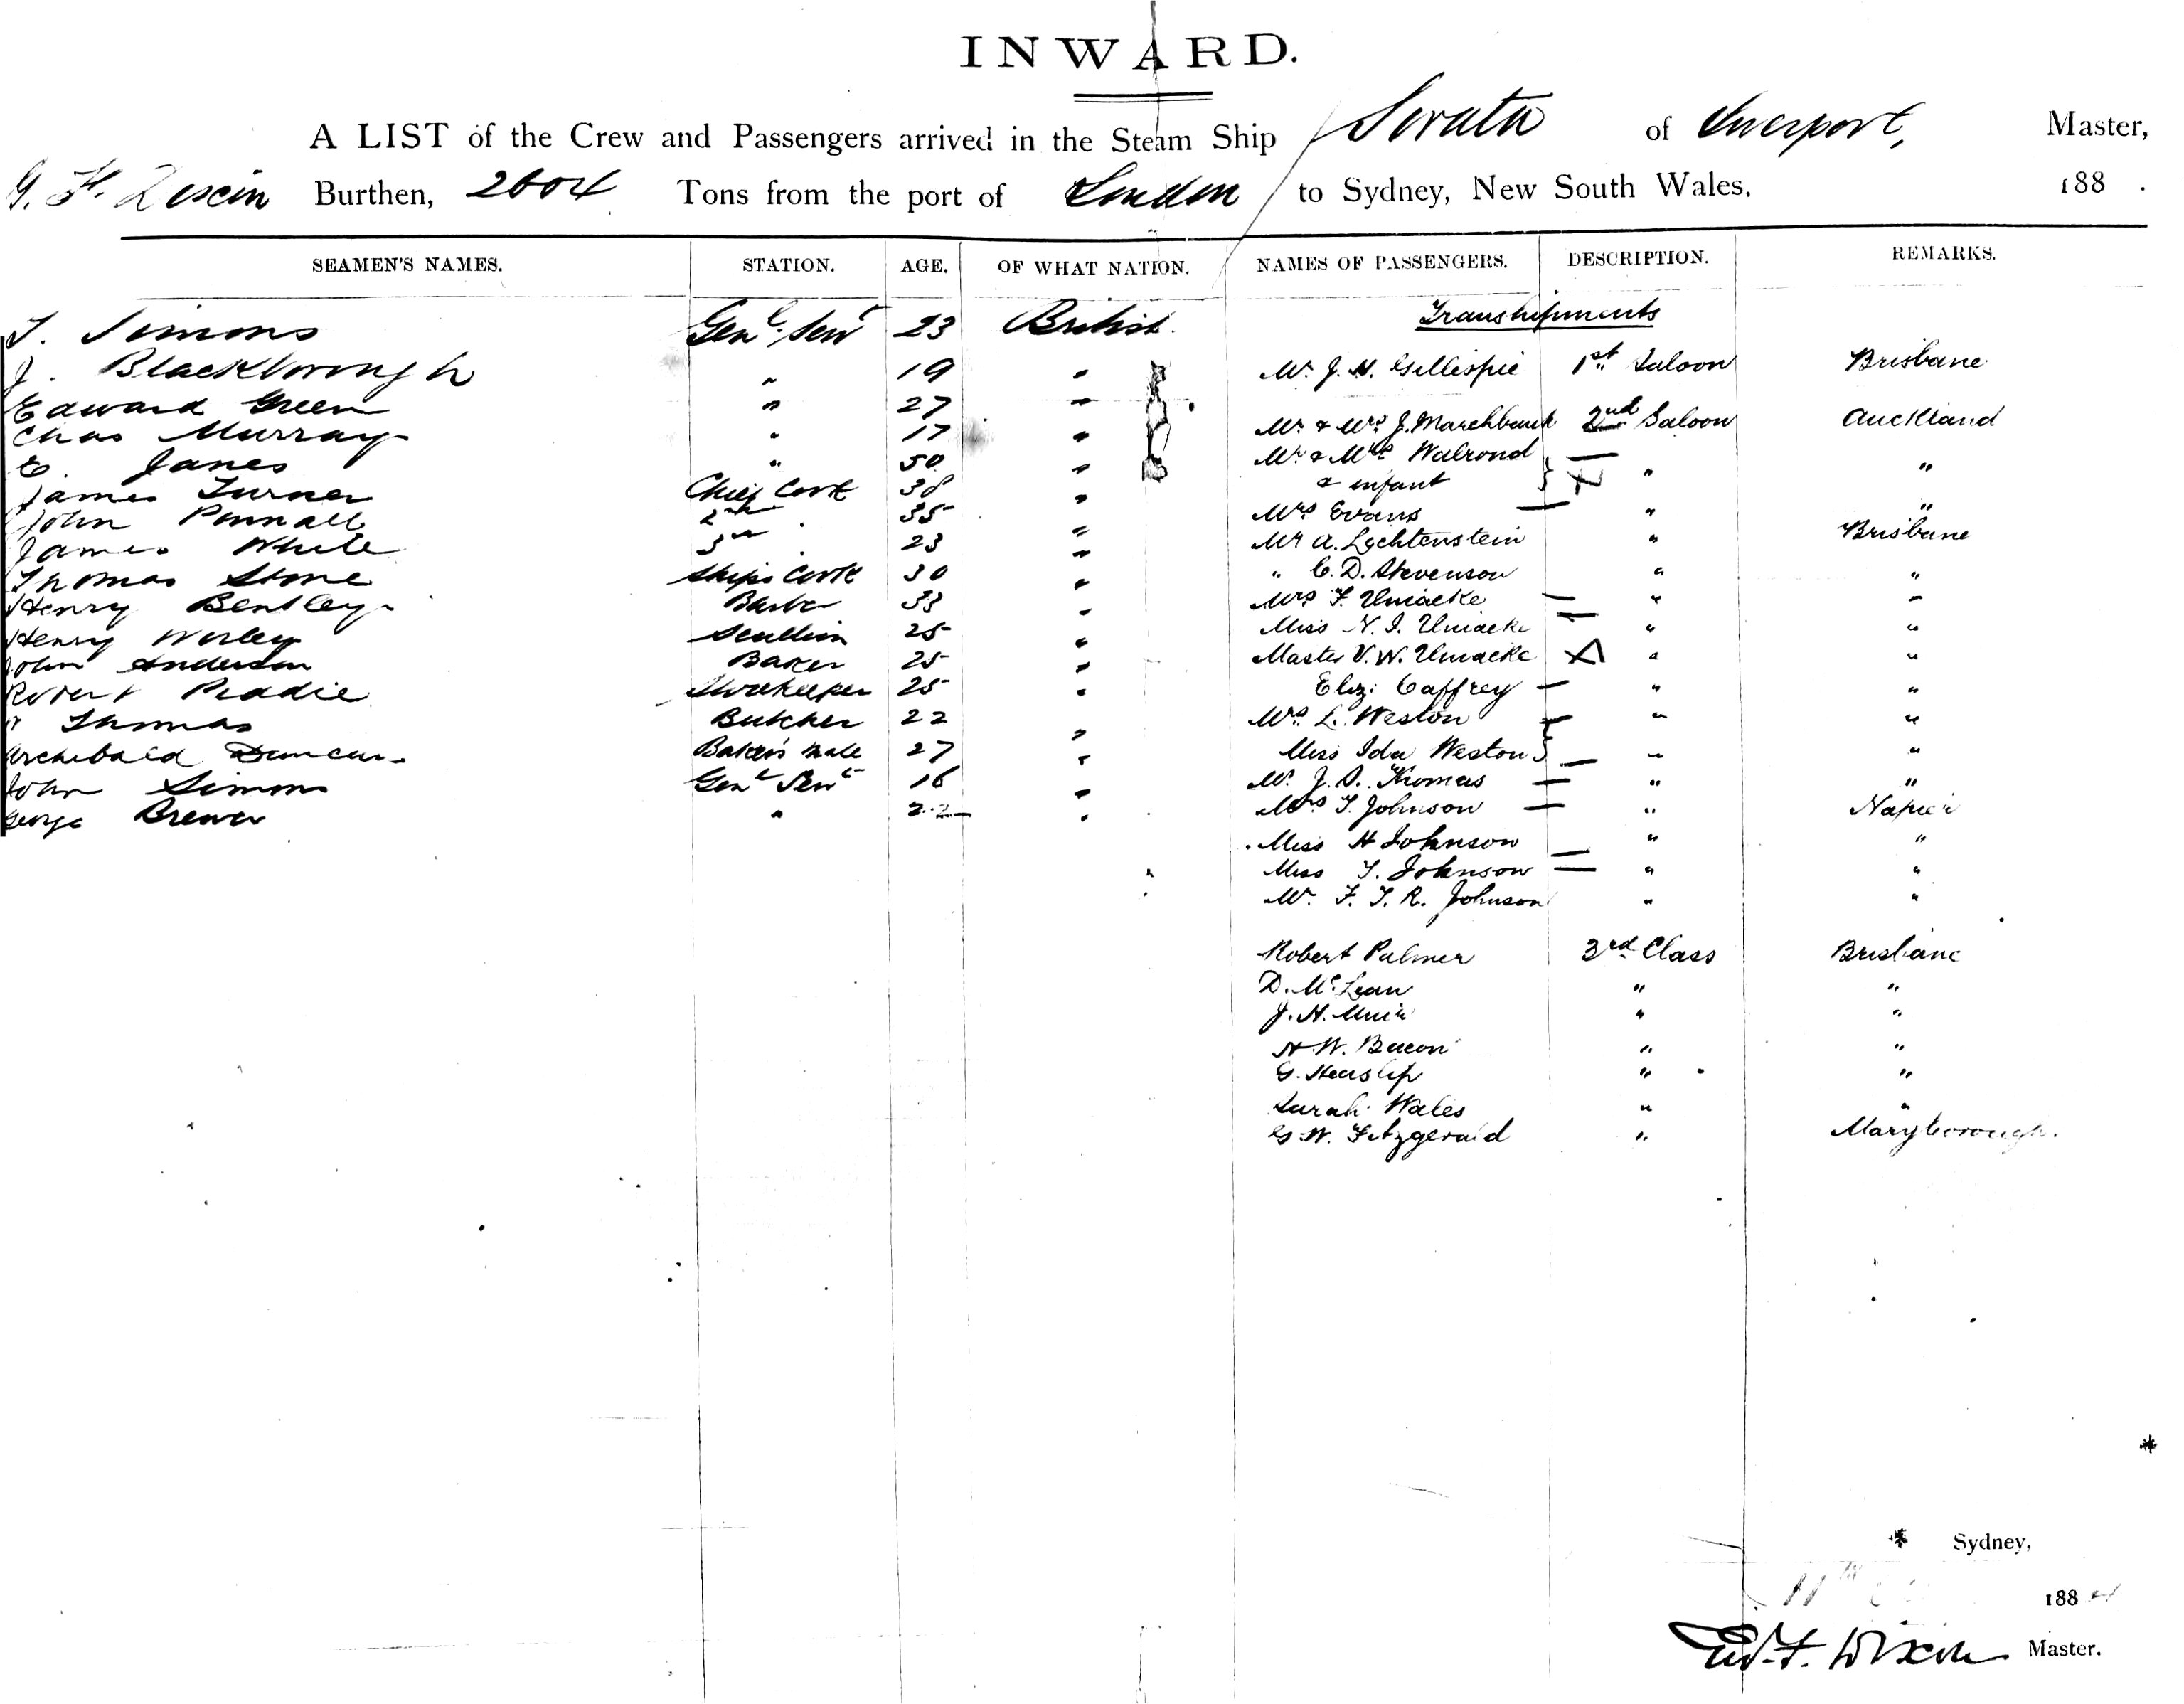 INWARD.
A LIST of the Crew and Passengers arrived in the Steam Ship Sorata of Liverpool, Master,
G. F. Dixon Burthen, 2604 Tons from the port of London to Sydney, New South Wales, 188 .
SEAMEN'S NAMES. STATION. AGE. OF WHAT NATION. NAMES OF PASSENGERS. DESCRIPTION. REMARKS.
Transhipments
T. Simons Genl. Servt 23 British
J. Blackborough " 19 " Mr. J. H. Gillespie 1st Saloon Brisbane
Edward Green " 27 "
Chas Murray " 17 " Mr & Mrs J. Marchbank 2nd Saloon Auckland
E. Janes " 50 " Mr & Mrs Walrond
James Turner Chief Cook 38 " & infant " "
John Pennall 2nd " 35 " Mrs Evans " "
James White 3rd " 23 " Mr A. Lychtenstein " Brisbane
Thomas Stone Ships Cook 30 " " C. D. Stevenson " "
Henry Bentley Barber 33 " Mrs F. Uniacke " "
Henry Worley Scullion 25 " Miss N. I. Uniacke " "
John Anderson Baker 25 " Master V. W. Uniacke " "
Robert Peadie Storekeeper 25 " Eliz: Caffrey " "
Thomas Butcher 22 " Mrs L. Weston " "
Archibald Duncan Baker's Mate 27 " Miss Ida Weston " "
John Simons Genl Servt 16 " Mr. J. S. Thomas " "
George Brewer " 22 " Mrs T. Johnson " Napier
Miss H Johnson " "
Miss T. Johnson " "
Mr. F. T. R. Johnson " "
Robert Palmer 3rd Class Brisbane
D. McLean " "
J. H. Muir " "
H. W. Bacon " "
G. Heaslip " "
Sarah Wales " "
G. W. Fitzgerald " Maryborough.
* Sydney,
11th 1884
Master.